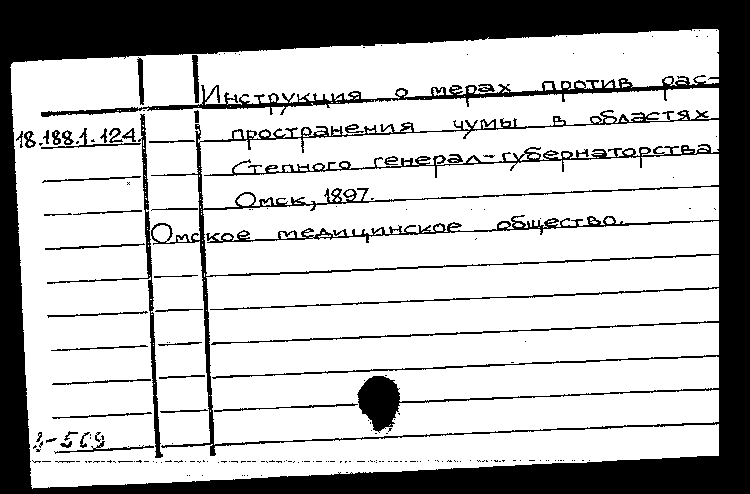 Инструкция о мерах против рас-
18.188.1.124. пространения чумы в областях
Степного генерал-губернаторства.
Омск, 1897.
Омское медицинское общество.